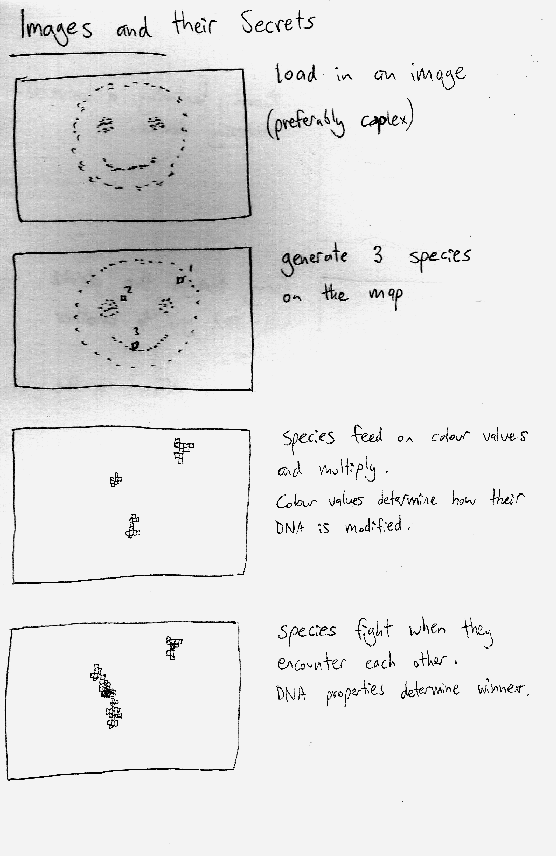 Images and their Secrets
Load in an image
(preferably coplex)
1
2
3
generate 3 species
on the map
Species feed on colour values
and multiply.
Colour values determine how their
DNA is modified.
Species fight when they
encounter each other.
DNA properties determine winner.